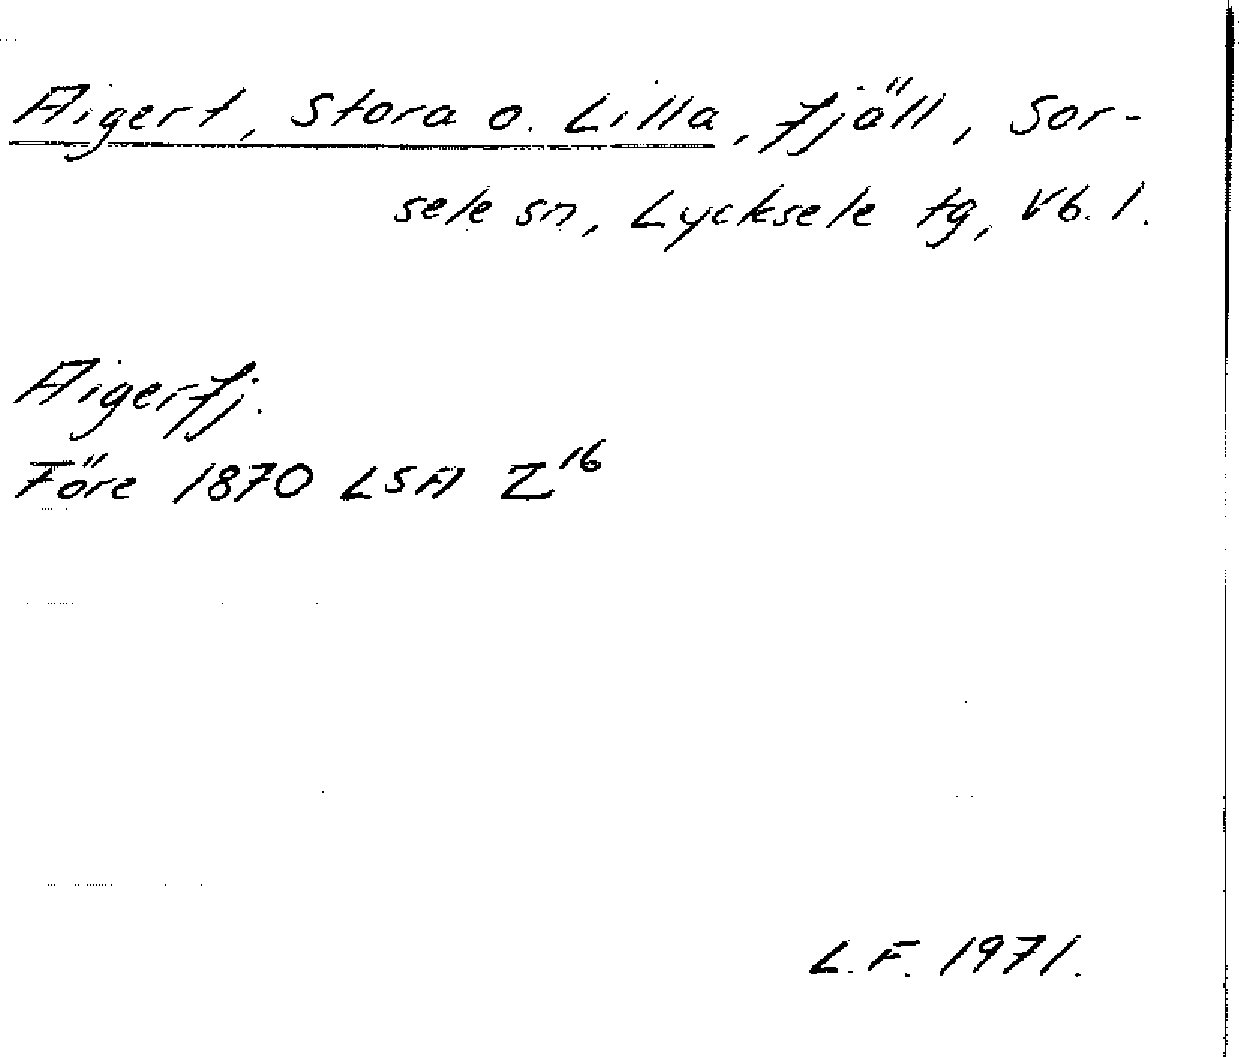 Aigert, Stora o. Lilla, fjäll, Sor-
sele sn, Lycksele tg, Vb. l.
Aigertfj.
Före 1870 LSA Z16
L.F. 1971.